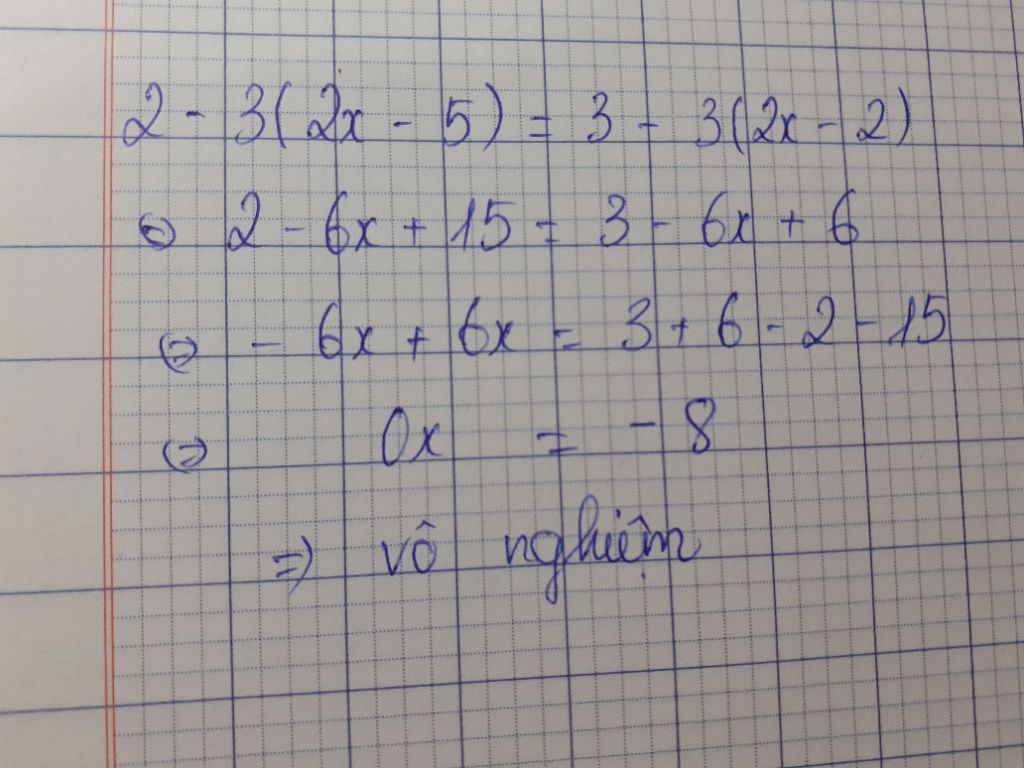 2 - 3(2x - 5) = 3 - 3(2x - 2)
⇔ 2 - 6x + 15 = 3 - 6x + 6
⇔ - 6x + 6x = 3 + 6 - 2 - 15
⇔ 0x = - 8
⇒ vô nghiệm